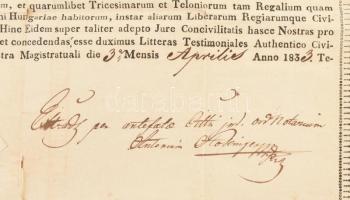 m, et quarumlibet Tricesimarum et Teloniorum tam Regalium quam
Hungariae habitorum, instar aliarum Liberarum Regiarumque Civi-
Hine Eidem super taliter adepto Jure Concivilitatis hasce Nostras pro
et concedendas esse duximus Litteras Testimoniales Authentico Civi-
stra Magistratuali die 3a Mensis Aprilis Anno 1833. Te-
per antefatae Notarium
Antonium